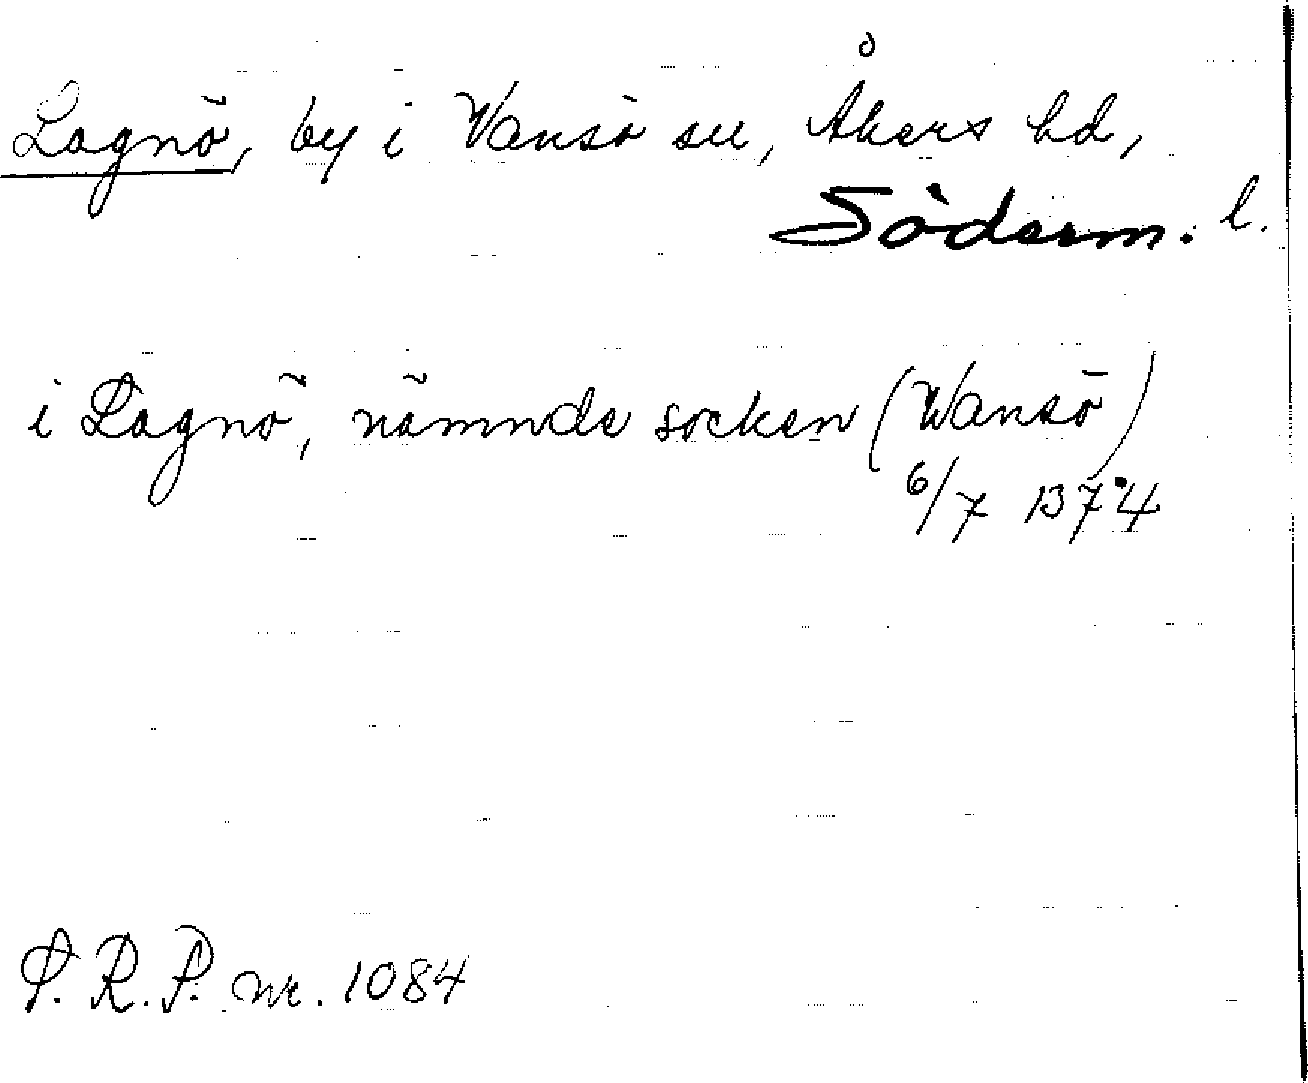 Lagnö, by i Vansö sn, Åkers hd,
Söderm. l.
i Lagnö, nämnde socken (Wansö)
6/7 1374
P. R. P. nr. 1084